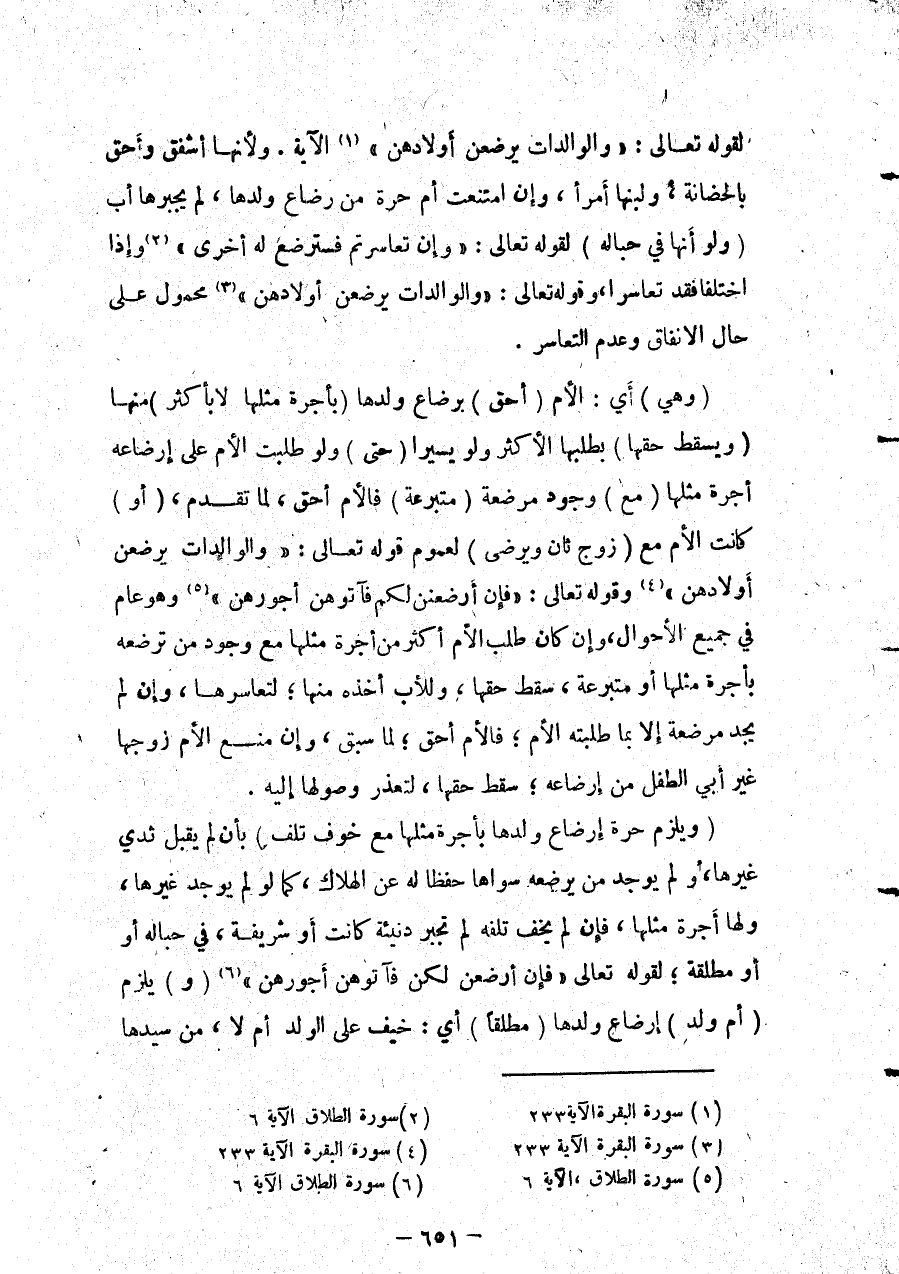 لقوله تعـالى : « والوالدات يرضعن أولادهن » (١) الآية . ولأنهـا أشفق وأحق
بالحضانة ؛ ولبنها أمرأ ، وإن امتنعت أم حرة من رضاع ولدها ، لم يجبرها أب
( ولو أنها في حباله ) لقوله تعالى : « وإن تعاسرتم فسترضع له أخرى » (٢) وإذا
اختلفا فقد تعاسرا ، وقوله تعالى : « والوالدات يرضعن أولادهن » (٣) محمول عـلى
حال الانفاق وعدم التعاسر .
( وهي ) أي : الأم ( أحق ) برضاع ولدها ( بأجرة مثلها لا بأكثر ) منهـا
( ويسقط حقها ) بطلبها الأكثر ولو يسيرا ( حتى ) ولو طلبت الأم على إرضاعه
أجرة مثلها ( مع ) وجود مرضعة ( متبرعة ) فالأم أحق ، لما تقـدم ، ( أو )
كانت الأم مع ( زوج ثان ويرضى ) لعموم قوله تعـالى : « والوالدات يرضعن
أولادهن » (٤) وقوله تعالى : « فإن أرضعنن لكم فآتوهن أجورهن » (٥) وهو عام
في جميع الأحوال ، وإن كان طلب الأم أكثر من أجرة مثلها مع وجود من ترضعه
بأجرة مثلها أو متبرعة ، سقط حقها ، وللأب أخذه منها ؛ لتعاسرهـا ، وإن لم
يجد مرضعة إلا بما طلبته الأم ؛ فالأم أحق ؛ لما سبق ، وإن منـع الأم زوجها
غير أبي الطفل من إرضاعه ؛ سقط حقها ، لتعذر وصولها إليه .
( ويلزم حرة إرضاع ولدها بأجرة مثلها مع خوف تلف ) بأن لم يقبل ثدي
غيرها ، أو لم يوجد من يرضعه سواها حفظا له عن الهلاك ، كما لو لم يوجد غيرها ،
ولها أجرة مثلها ، فإن لم يخف تلفه لم تجبر دنيئة كانت أو شريفـة ، في حباله أو
أو مطلقة ؛ لقوله تعالى « فإن أرضعن لكن فآتوهن أجورهن » (٦) ( و ) يلزم
( أم ولد ) إرضاع ولدها ( مطلقاً ) أي : خيف على الولد أم لا ، من سيدها
(١) سورة البقرة الآية ٢٣٣ (٢) سورة الطلاق الآية ٦
(٣) سورة البقرة الآية ٢٣٣ (٤) سورة البقرة الآية ٢٣٣
(٥) سورة الطلاق ، الآية ٦ (٦) سورة الطلاق الآية ٦
— ٦٥١ —